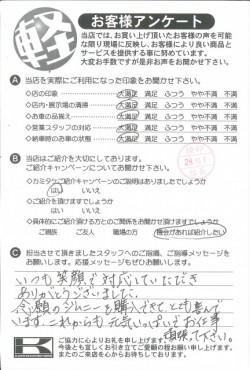 軽
お客様アンケート
当店では、お買い上げ頂いたお客様の声を可能
な限り現場に反映し、お客様により良い商品と
サービスを提供する事に努めています。
大変お手数ですが是非お声をお聞かせ下さい。
A 当店を実際にご利用になった印象をお聞かせ下さい。
◇店の印象 大満足 満足 ふつう やや不満 不満
◇店内・展示場の清掃 大満足 満足 ふつう やや不満 不満
◇お車の品揃え 大満足 満足 ふつう やや不満 不満
◇営業スタッフの対応 大満足 満足 ふつう やや不満 不満
◇納車時のお車の状態 大満足 満足 ふつう やや不満 不満
B 当店はご紹介を大切にしております。
ご紹介キャンペーンについてお聞かせ下さい。
◇カミタケご紹介キャンペーンのご説明はありましたでしょうか
はい いいえ
◇ご紹介を頂けますでしょうか
はい いいえ
◇具体的にご紹介頂ける方とのご関係をお聞かせ頂けますでしょうか
ご親族 ご友人 職場の方 機会があれば紹介したい
C 担当させて頂きましたスタッフへのご指摘、ご指導メッセージを
お願いします。応援メッセージもぜひお願いします。
いつも笑顔で対応していただき
ありがとうございました。
念願のジムニーを購入できて、とても喜んで
います。これからも、元気いっぱいでお仕事
頑張って下さい。
K
ご協力に心よりお礼を申し上げます。
今後とも宜しくお引き立てご愛顧の程お願い申し上げます。
またのご来店を心からお待ちしております。